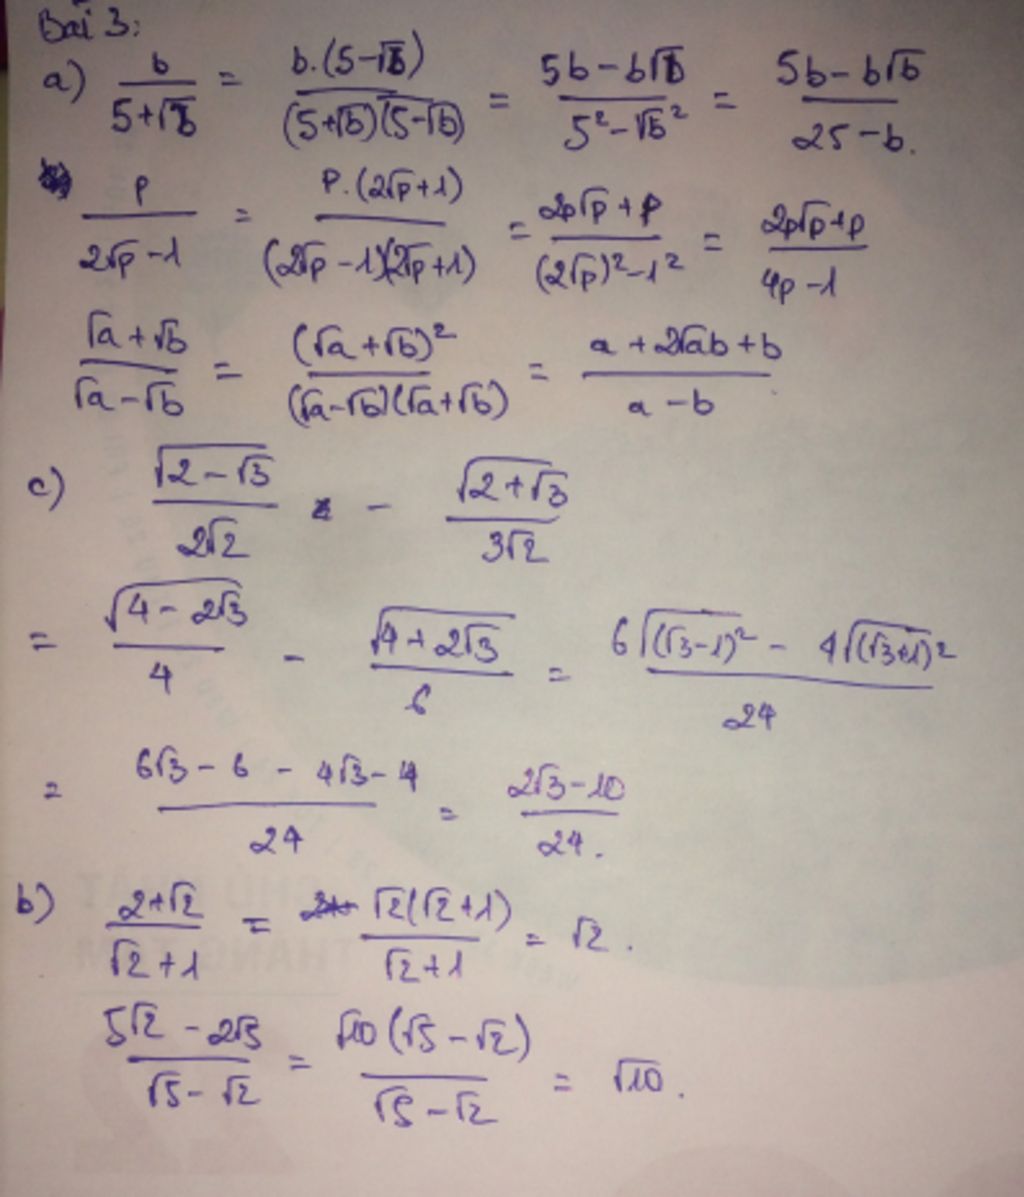 Bài 3:
a) b/(5+√b) = b.(5-√b)/((5+√b)(5-√b)) = (5b-b√b)/(5²-√b²) = (5b-b√b)/(25-b).
p/(2√p-1) = p.(2√p+1)/((2√p-1)(2√p+1)) = (2p√p+p)/((2√p)²-1²) = (2p√p+p)/(4p-1)
(√a+√b)/(√a-√b) = (√a+√b)²/((√a-√b)(√a+√b)) = (a+2√ab+b)/(a-b)
c) √(2-√3)/(2√2) - √(2+√3)/(3√2)
= √(4-2√3)/4 - √(4+2√3)/6 = (6√((√3-1)²) - 4√((√3+1)²))/24
= (6√3-6-4√3-4)/24 = (2√3-10)/24.
b) (2+√2)/(√2+1) = √2(√2+1)/(√2+1) = √2.
(5√2-2√5)/(√5-√2) = √10(√5-√2)/(√5-√2) = √10.